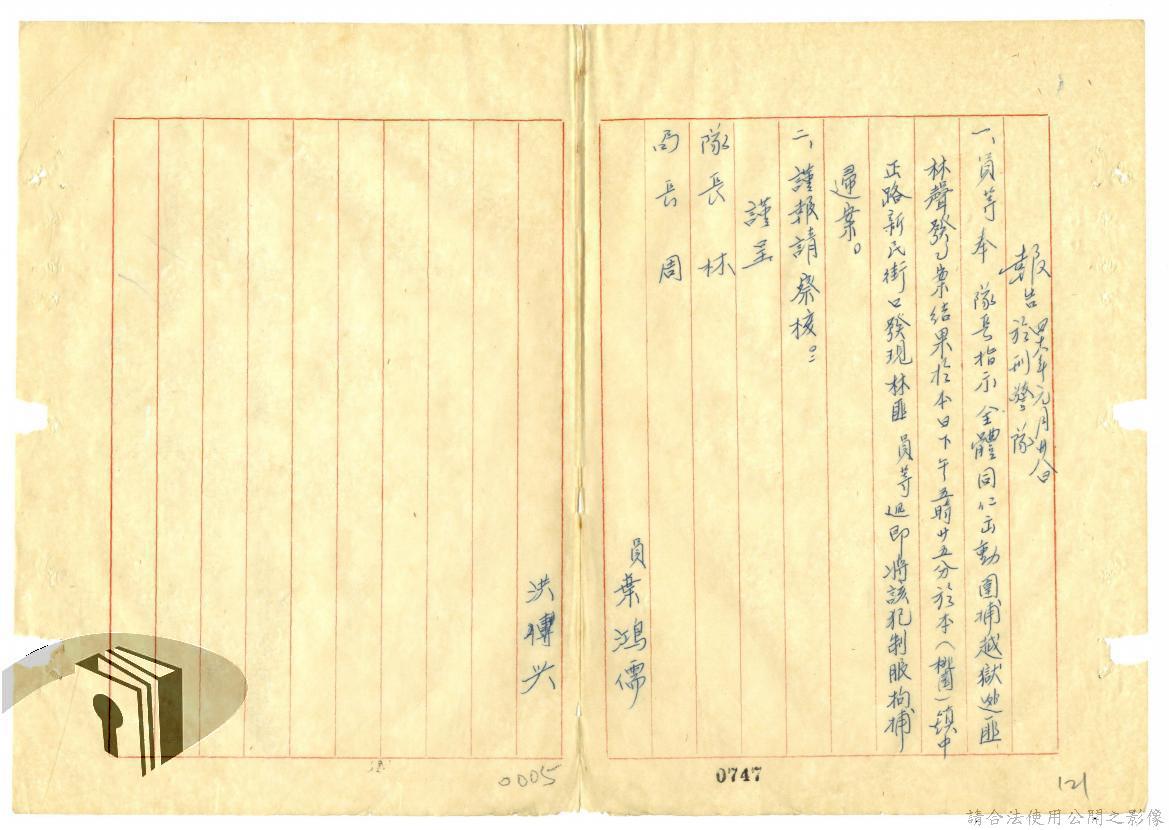 報告 四六年元月廿八日
於刑警隊
一、員等奉 隊長指示全體同仁出動圍捕越獄逃匪
林聲發乙案結果於本日下午五時廿五分於本(桃園)鎮中
正路新民街口發現林匪 員等迅即將該犯制服拘捕
歸案。
二、謹報請察核。
謹呈
隊長 林
局長 周
員葉鴻儒
洪傳兴
0005
0747
121
請合法使用公開之影像